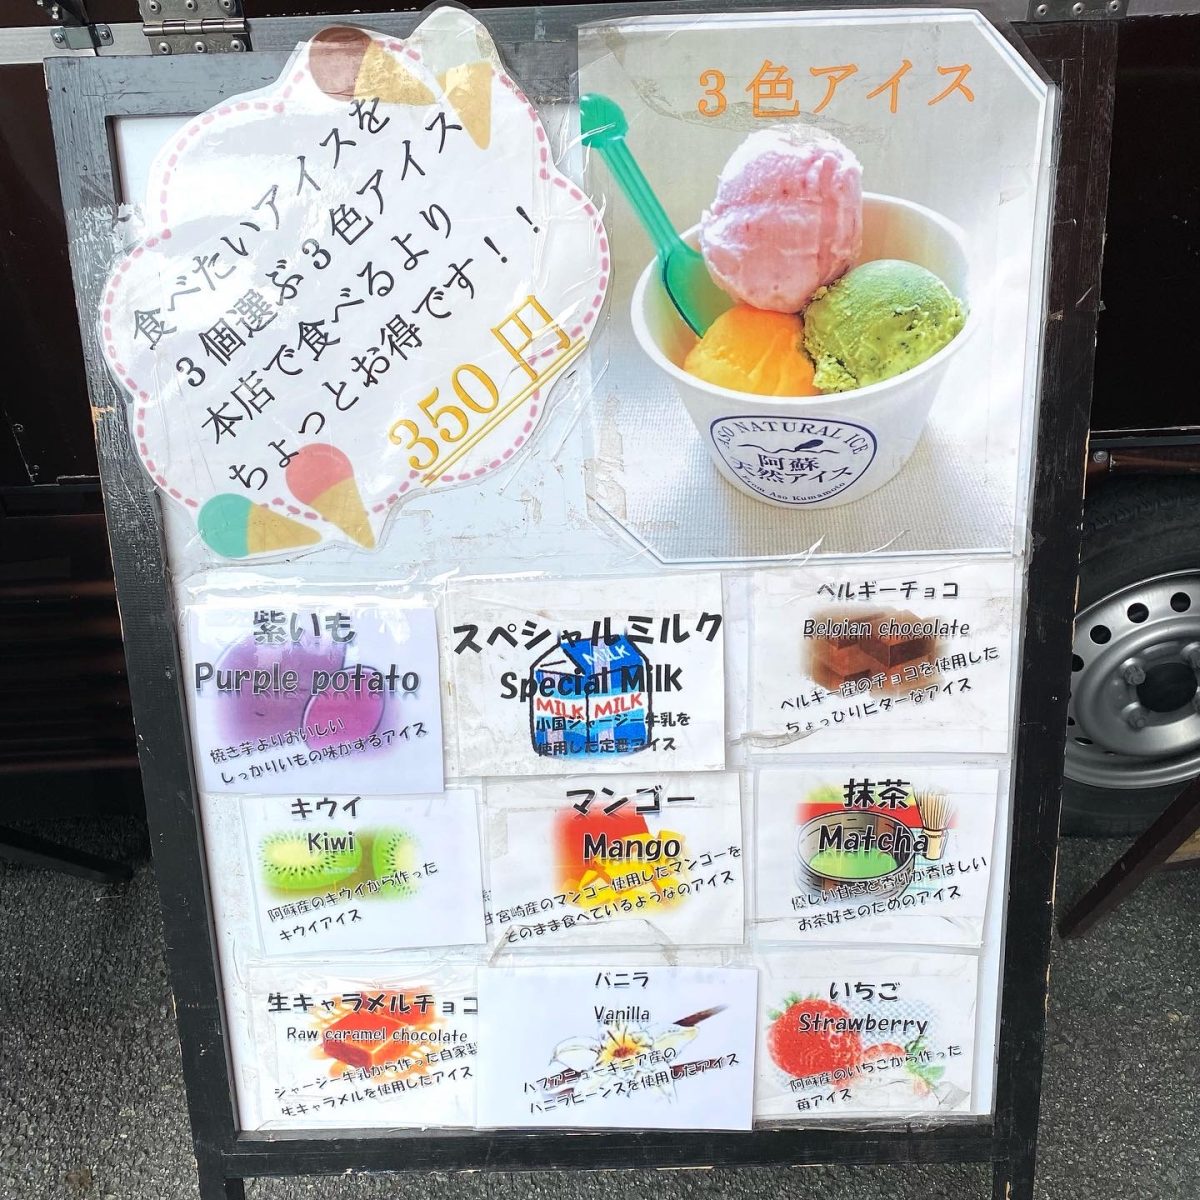 食べたいアイスを
3個選ぶ3色アイス
本店で食べるより
ちょっとお得です！！
350円
3色アイス
ASO NATURAL ICE
阿蘇
天然アイス
From Aso Kumamoto
紫いも
Purple potato
焼き芋よりおいしい
しっかりいもの味がするアイス
スペシャルミルク
Special Milk
MILK
MILK MILK
小国ジャージー牛乳を
使用した定番アイス
ベルギーチョコ
Belgian chocolate
ベルギー産のチョコを使用した
ちょっぴりビターなアイス
キウイ
Kiwi
阿蘇産のキウイから作った
キウイアイス
マンゴー
Mango
宮崎産のマンゴー使用したマンゴーを
そのまま食べているようなのアイス
抹茶
Matcha
優しい甘さと香りが香ばしい
お茶好きのためのアイス
生キャラメルチョコ
Raw caramel chocolate
ジャージー牛乳から作った自家製
生キャラメルを使用したアイス
バニラ
Vanilla
パプアニューギニア産の
バニラビーンズを使用したアイス
いちご
Strawberry
阿蘇産のいちごから作った
苺アイス